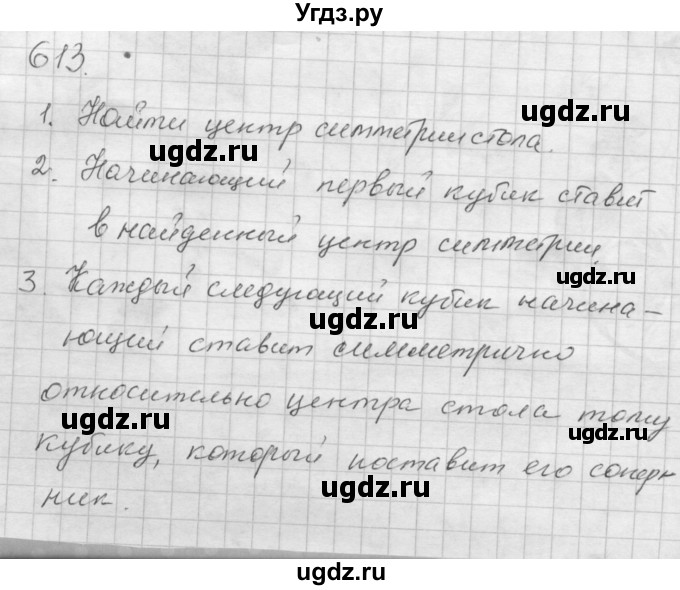 Угдз.ру
613.
1. Найти центр симметрии стола.
ugdz.ru
ugdz.ru
2. Начинающий первый кубик ставит
ugdz.ru
в найденный центр симметрии
ugdz.ru
3. Каждый следующий кубик начина-
ugdz.ru
ющий ставит симметрично
относительно центра стола тому
ugdz.ru
ugdz.ru
кубику, который поставит его сопер
ugdz.ru
ник.
ugdz.ru